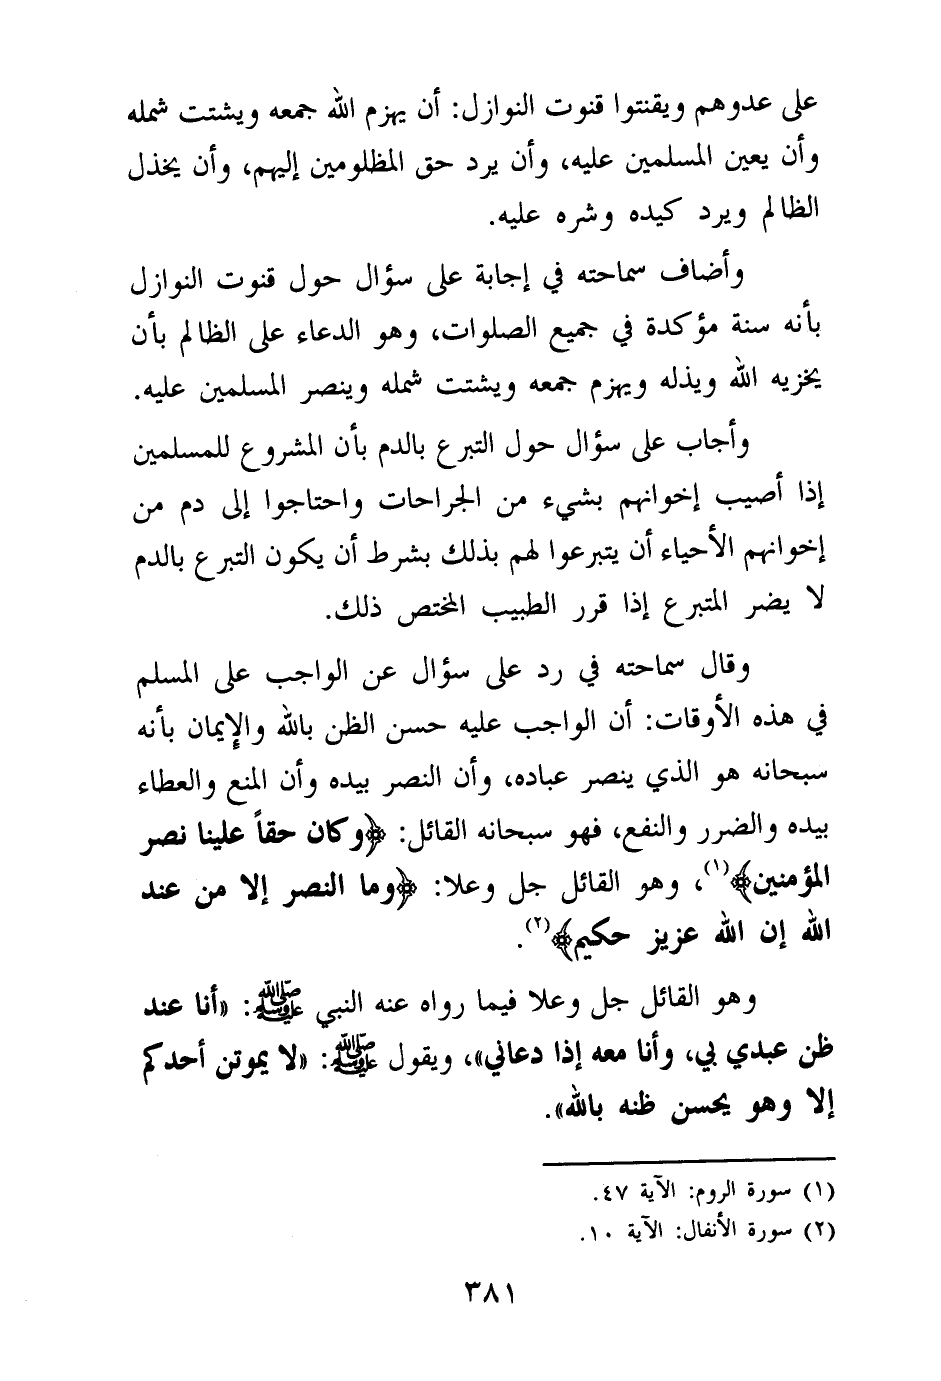 على عدوهم ويقنتوا قنوت النوازل: أن يهزم الله جمعه ويشتت شمله
وأن يعين المسلمين عليه، وأن يرد حق المظلومين إليهم، وأن يخذل
الظالم ويرد كيده وشره عليه.
وأضاف سماحته في إجابة على سؤال حول قنوت النوازل
بأنه سنة مؤكدة في جميع الصلوات، وهو الدعاء على الظالم بأن
يخزيه الله ويذله ويهزم جمعه ويشتت شمله وينصر المسلمين عليه.
وأجاب على سؤال حول التبرع بالدم بأن المشروع للمسلمين
إذا أصيب إخوانهم بشيء من الجراحات واحتاجوا إلى دم من
إخوانهم الأحياء أن يتبرعوا لهم بذلك بشرط أن يكون التبرع بالدم
لا يضر المتبرع إذا قرر الطبيب المختص ذلك.
وقال سماحته في رد على سؤال عن الواجب على المسلم
في هذه الأوقات: أن الواجب عليه حسن الظن بالله والإيمان بأنه
سبحانه هو الذي ينصر عباده، وأن النصر بيده وأن المنع والعطاء
بيده والضرر والنفع، فهو سبحانه القائل: ﴿وكان حقاً علينا نصر
المؤمنين﴾(١)، وهو القائل جل وعلا: ﴿وما النصر إلا من عند
الله إن الله عزيز حكيم﴾(٢).
وهو القائل جل وعلا فيما رواه عنه النبي ﷺ: «أنا عند
ظن عبدي بي، وأنا معه إذا دعاني»، ويقول ﷺ: «لا يموتن أحدكم
إلا وهو يحسن ظنه بالله».
(١) سورة الروم: الآية ٤٧.
(٢) سورة الأنفال: الآية ١٠.
٣٨١